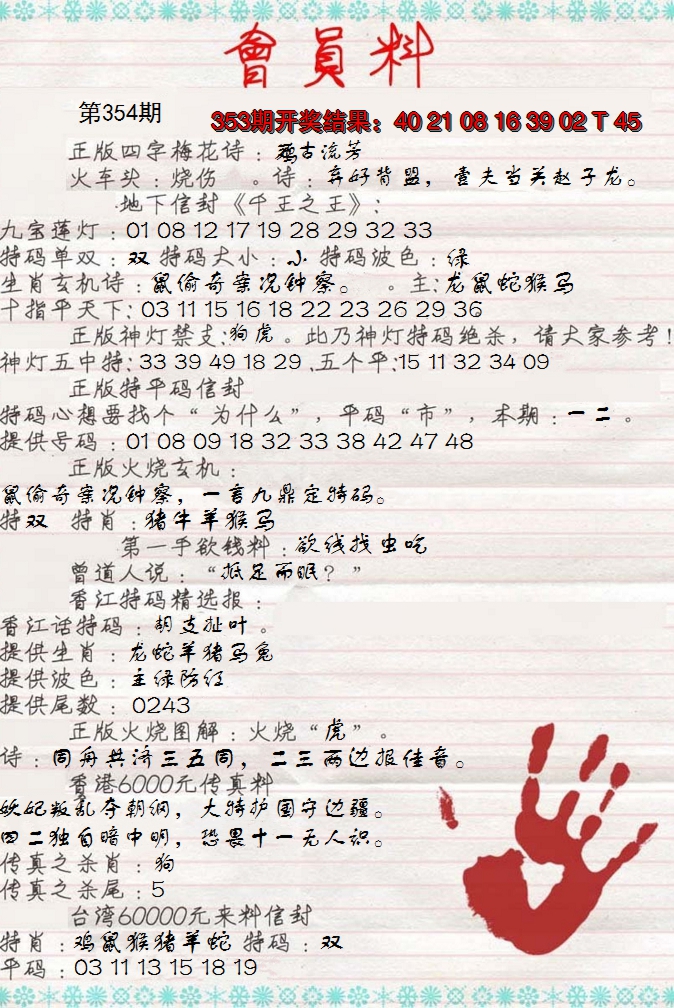 會員料
第354期
353期开奖结果：40 21 08 16 39 02 T 45
正版四字梅花诗：鸡古流芳
火车头：烧伤 。诗：弃好背盟，壹夫当关赵子龙。
地下信封《千王之王》：
九宝莲灯：01 08 12 17 19 28 29 32 33
特码单双：双 特码大小：小 特码波色：绿
生肖玄机诗：鼠偷奇案况钟察。 。主:龙鼠蛇猴马
十指平天下:03 11 15 16 18 22 23 26 29 36
正版神灯禁支:狗虎。此乃神灯特码绝杀，请大家参考！
神灯五中特:33 39 49 18 29 .五个平:15 11 32 34 09
正版特平码信封
特码心想要找个“为什么”，平码“市”，本期：一二。
提供号码：01 08 09 18 32 33 38 42 47 48
正版火烧玄机：
鼠偷奇案况钟察，一言九鼎定特码。
特双 特肖：猪牛羊猴马
第一手欲钱料：欲钱找虫吃
曾道人说：“抵足而眠？”
香江特码精选报：
香江话特码：胡支扯叶。
提供生肖：龙蛇羊猪马兔
提供波色：主绿防红
提供尾数：0243
正版火烧图解：火烧“虎”。
诗：同舟共济三五周，二三两边报佳音。
香港6000元传真料
妖妃叛乱夺朝纲，大特护国守边疆。
四二独自暗中明，恐畏十一无人识。
传真之杀肖：狗
传真之杀尾：5
台湾60000元来料信封
特肖：鸡鼠猴猪羊蛇 特码：双
平码：03 11 13 15 18 19